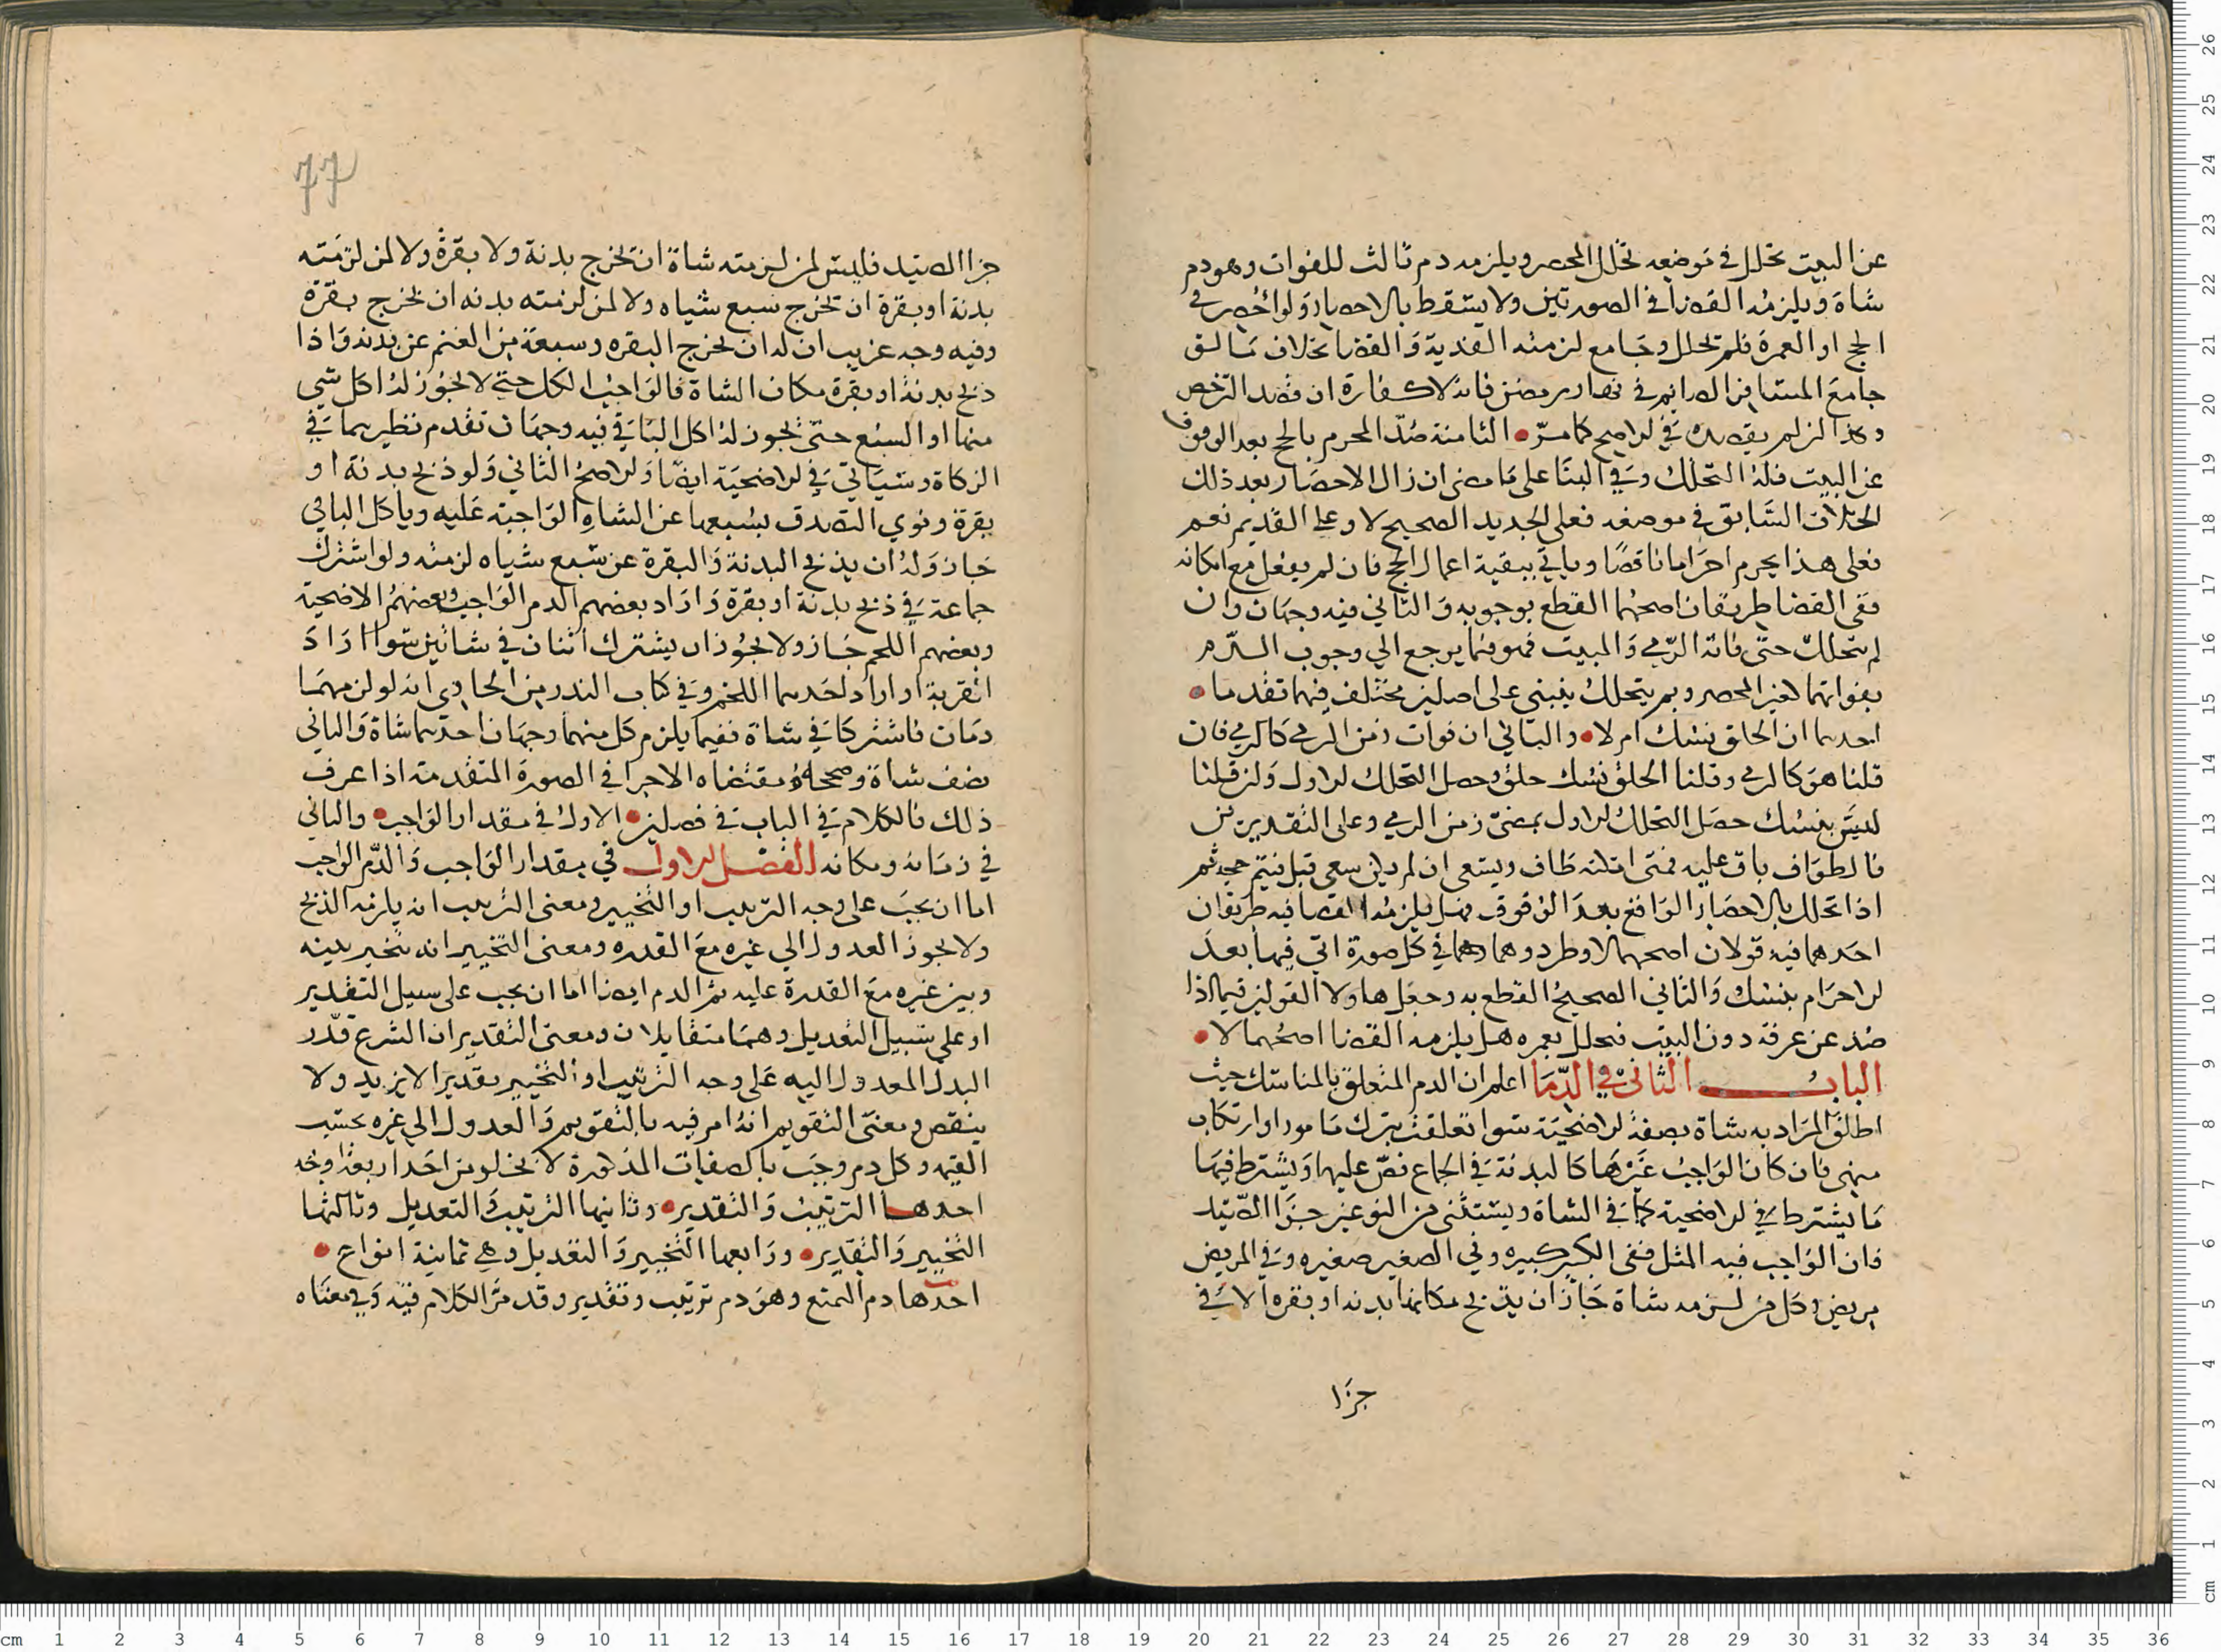 عن البيت تحلل في موضعه تحلل المحصر ويلزمه دم ثالث للفوات وهو دم
شاة ويلزمه القضا في الصورتين ولا يسقط بالاحصار ولو احصر في
الحج او العمرة فلم تحلل وجامع لزمته الفدية والقضا بخلاف ما لو
جامع المسافر الصايم في نهار رمضان فانه لا كفارة ان قصد الترخص
وكذا ان لم يقصده في الاصح كما مر • الثامنة صد المحرم بالحج بعد الوقوف
عن البيت فله التحلل وفي البنا على ما مضى ان زال الاحصار بعد ذلك
الخلاف السابق في موضعه فعلى الجديد الصحيح لا وعلى القديم نعم
فعلى هذا يحرم احراما ناقصا وياتي ببقية اعمال الحج فان لم يفعل مع امكانه
ففي القضا طريقان اصحهما القطع بوجوبه والثاني فيه وجهان وان
لم يتحلل حتى فاته الرمي والمبيت فهو فيما يرجع الي وجوب الدم
بفواتهما لغير المحصر وبم يتحلل ينبني على اصلين مختلف فيهما تقدما •
احدهما ان الحلق نسك ام لا • والثاني ان فوات زمن الرمي كالرمي فان
قلنا هو كالرمي وقلنا الحلق نسك حلق وحصل التحلل الاول وان قلنا
ليس بنسك حصل التحلل الاول بمضي زمن الرمي وعلى التقديرين
فالطواف باق عليه فمتى امكنه طاف ويسعى ان لم يكن سعى قبل فيتم حجه ثم
اذا تحلل بالاحصار الواقع بعد الوقوف فهل يلزمه القضا فيه طريقان
احدهما فيه قولان اصحهما لا وطردوهما في كل صورة اتي فيها بعد
الاحرام بنسك والثاني الصحيح القطع به وجعل هاولا القولين فيما اذا
صد عن عرفة دون البيت فتحلل بعمره هل يلزمه القضا اصحهما لا •
الباب الثاني في الدما اعلم ان الدم المتعلق بالمناسك حيث
اطلق المراد به شاة بصفة الاضحية سوا تعلقت بترك مامور او ارتكاب
منهي فان كان الواجب غيرها كالبدنة في الجماع نص عليها ويشترط فيها
ما يشترط في الاضحية كما في الشاة ويستثنى من النوعين جزا الصيد
فان الواجب فيه المثل ففي الكبير كبيره وفي الصغير صغيره وفي المريض
مريض وكل من لزمه شاة جاز ان يذبح مكانها بدنه او بقره الا في
جزا
77
جزا الصيد فليس لمن لزمته شاة ان تخرج بدنة ولا بقرة ولا لمن لزمته
بدنة او بقرة ان تخرج سبع شياه ولا لمن لزمته بدنه ان يخرج بقرة
وفيه وجه غريب ان له ان يخرج البقره وسبعة من الغنم عن بدنه واذا
ذبح بدنة او بقرة مكان الشاة فالواجب الكل حتى لا يجوز له اكل شي
منها او السبع حتى يجوز له اكل الباقي فيه وجهان تقدم نظيرهما في
الزكاة وسياتي في الاضحية ايضا والاصح الثاني ولو ذبح بدنة او
بقرة ونوي التصدق بسبعها عن الشاة الواجبة عليه وياكل الباقي
جاز وله ان يذبح البدنة والبقرة عن سبع شياه لزمته ولو اشترك
جماعة في ذبح بدنة او بقرة واراد بعضهم الدم الواجب وبعضهم الاضحية
وبعضهم اللحم جاز ولا يجوز ان يشترك اثنان في شاتين سوا اراد
القربة او اراد احدهما اللحم وفي كتاب النذر من الحاوي انه لو لزمهما
دمان فاشتركا في شاة ففيما يلزم كل منهما وجهان احدهما شاة والثاني
نصف شاة وصححاه ومقتضاه الاجزا في الصورة المتقدمة اذا عرف
ذلك فالكلام في الباب في فصلين • الاول في مقدار الواجب • والثاني
في زمانه ومكانه الفصل الاول في مقدار الواجب والدم الواجب
اما ان يجب على وجه الترتيب او التخيير ومعنى الترتيب انه يلزمه الذبح
ولا يجوز العدول الي غيره مع القدره ومعنى التخيير انه تخير بينه
وبين غيره مع القدرة عليه ثم الدم ايضا اما ان يجب على سبيل التقدير
او على سبيل التعديل وهما متقابلان ومعنى التقدير ان الشرع قدر
البدل المعدول اليه على وجه الترتيب او التخيير بقدر الا يزيد ولا
ينقص ومعنى التقويم انه امر فيه بالتقويم والعدول الي غيره بحسب
القيمه وكل دم وجب بالصفات المذكورة لا يخلو من احد اربعة اوجه
احدها الترتيب والتقدير • وثانيها الترتيب والتعديل وثالثها
التخيير والتقدير • ورابعها التخيير والتعديل وهي ثمانية انواع •
احدها دم التمتع وهو دم ترتيب وتقدير وقد مر الكلام فيه وفي معناه